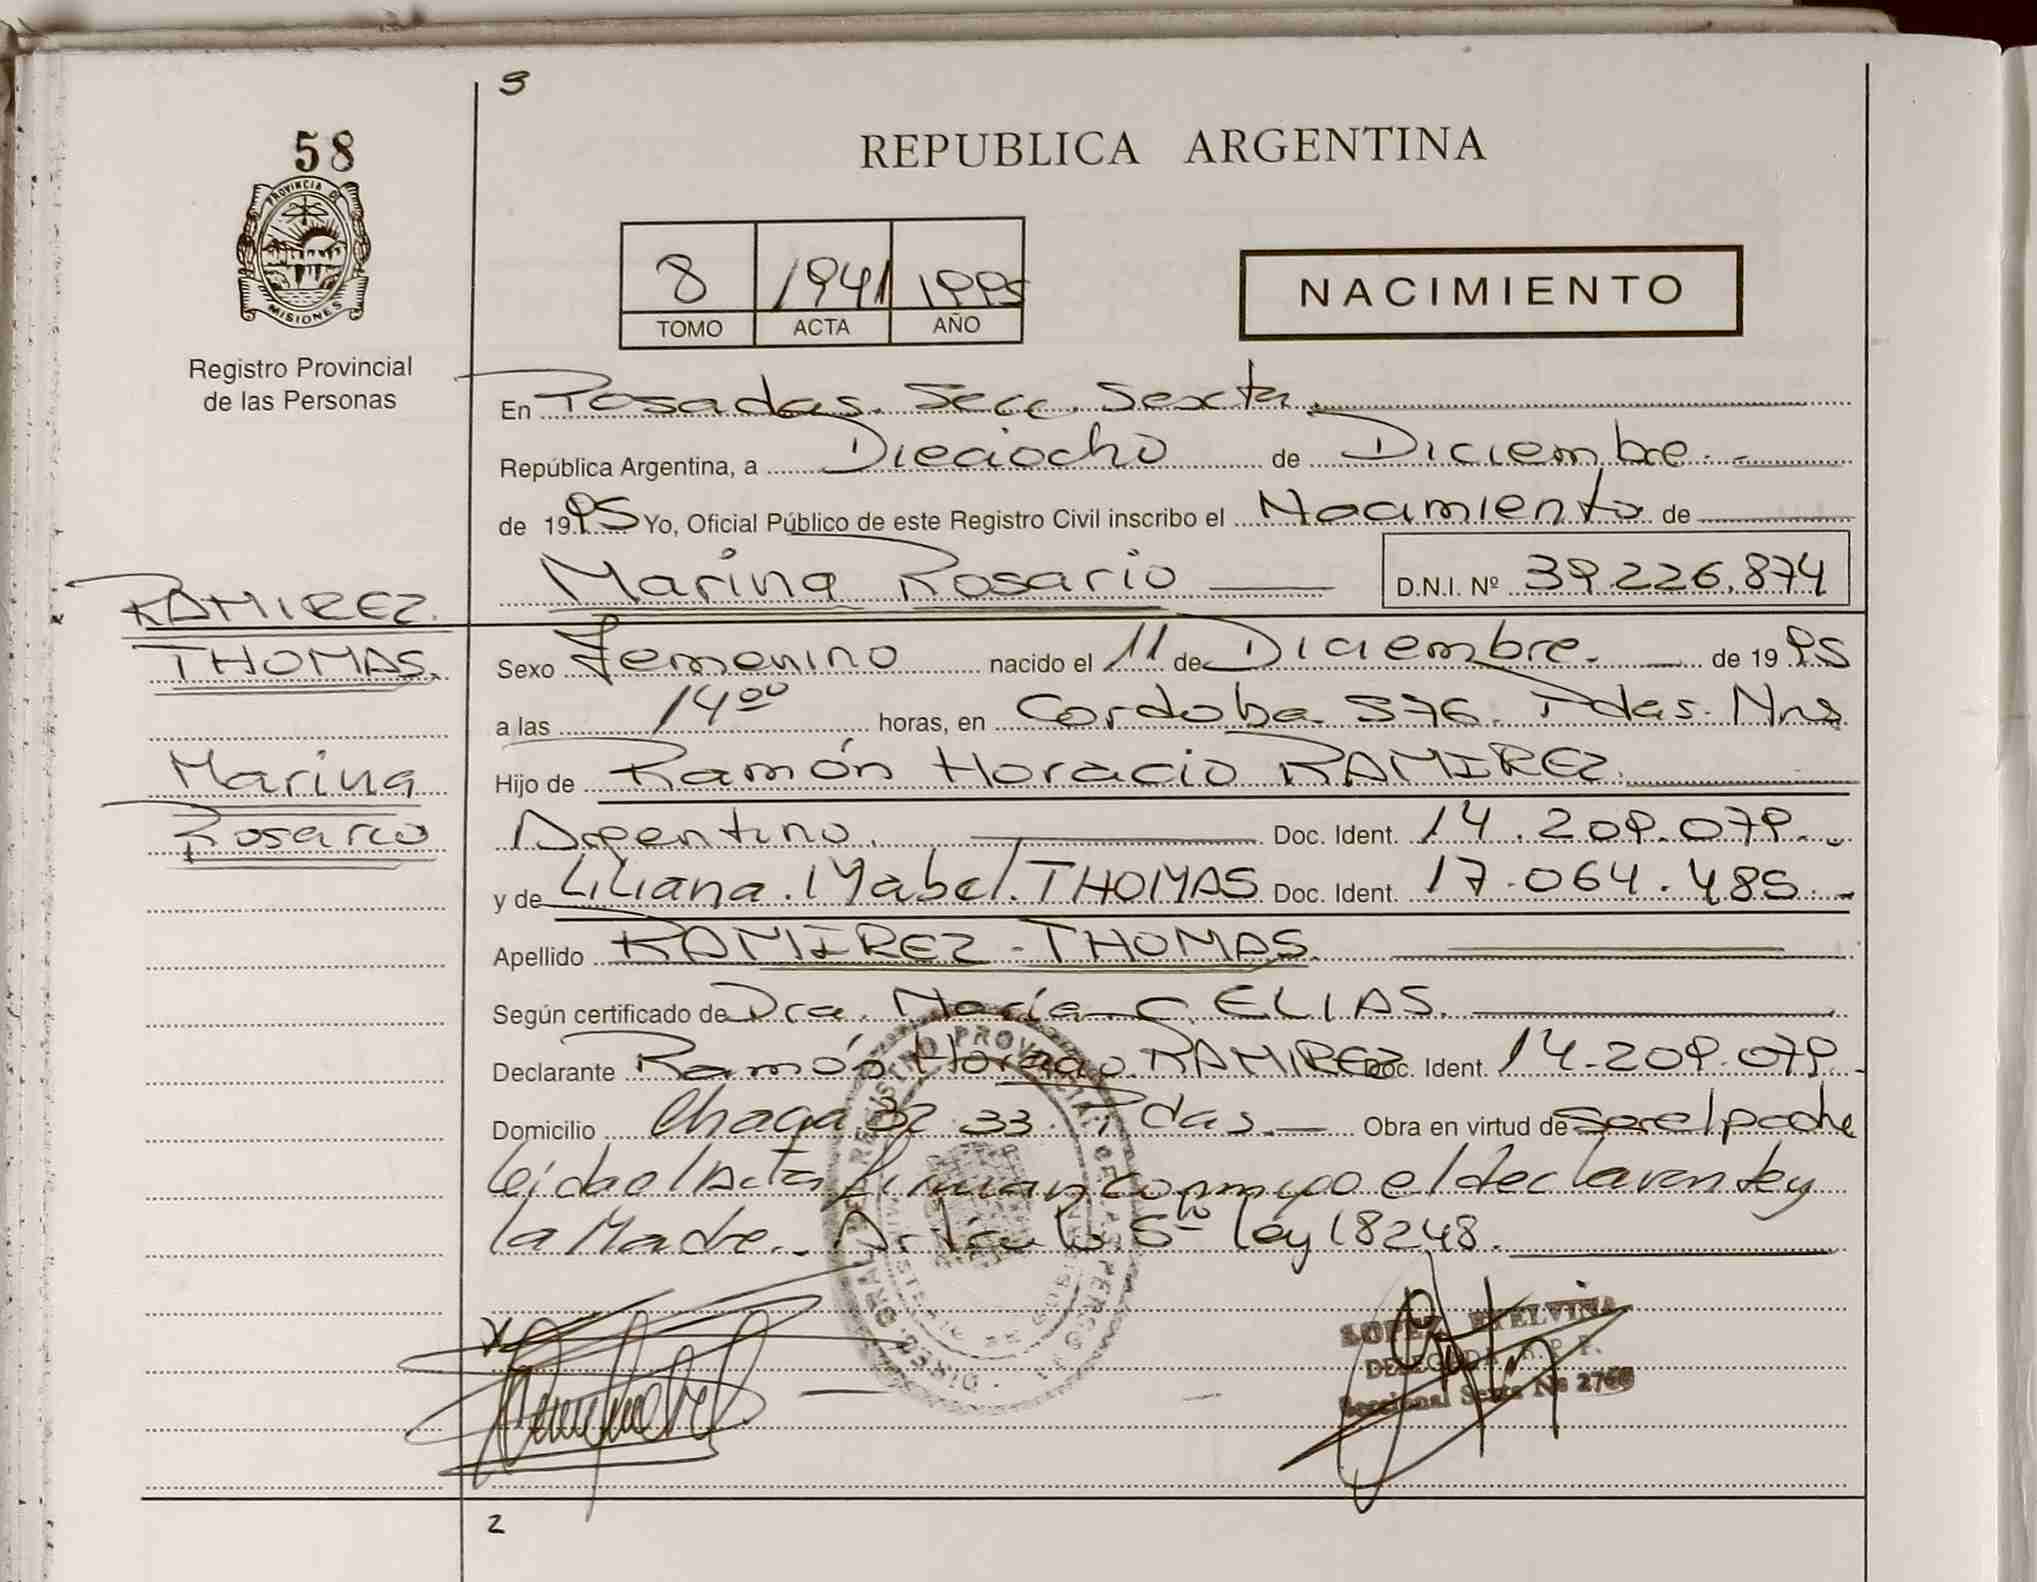 9
58
PROVINCIA DE
MISIONES
Registro Provincial
de las Personas
REPUBLICA ARGENTINA
8 1941 1995
TOMO ACTA AÑO
NACIMIENTO
En Posadas. Secc. Sexta.
República Argentina, a Dieciocho de Diciembre.
de 1995 Yo, Oficial Público de este Registro Civil inscribo el Nacimiento de
Marina Rosario D.N.I. Nº 39.226.874
RAMIREZ.
THOMAS.
Marina
Rosario
Sexo Femenino nacido el 11 de Diciembre. de 1995
a las 14⁰⁰ horas, en Cordoba 576. Pdas. Mns
Hijo de Ramón Horacio RAMIREZ.
Argentino. Doc. Ident. 14.209.079.
y de Liliana Mabel THOMAS Doc. Ident. 17.064.485.
Apellido RAMIREZ - THOMAS.
Según certificado de Dra. María C. ELIAS.
Declarante Ramón Horacio RAMIREZ Doc. Ident. 14.209.079.
Domicilio Chaca 32-33. Pdas. Obra en virtud de ser el padre
leida el Acta firman conmigo el declarante y
la Madre. Articulo 5to ley 18248.
LOPEZ ETELVINA
DELEGADA R. P. P.
Seccional Sexta
2